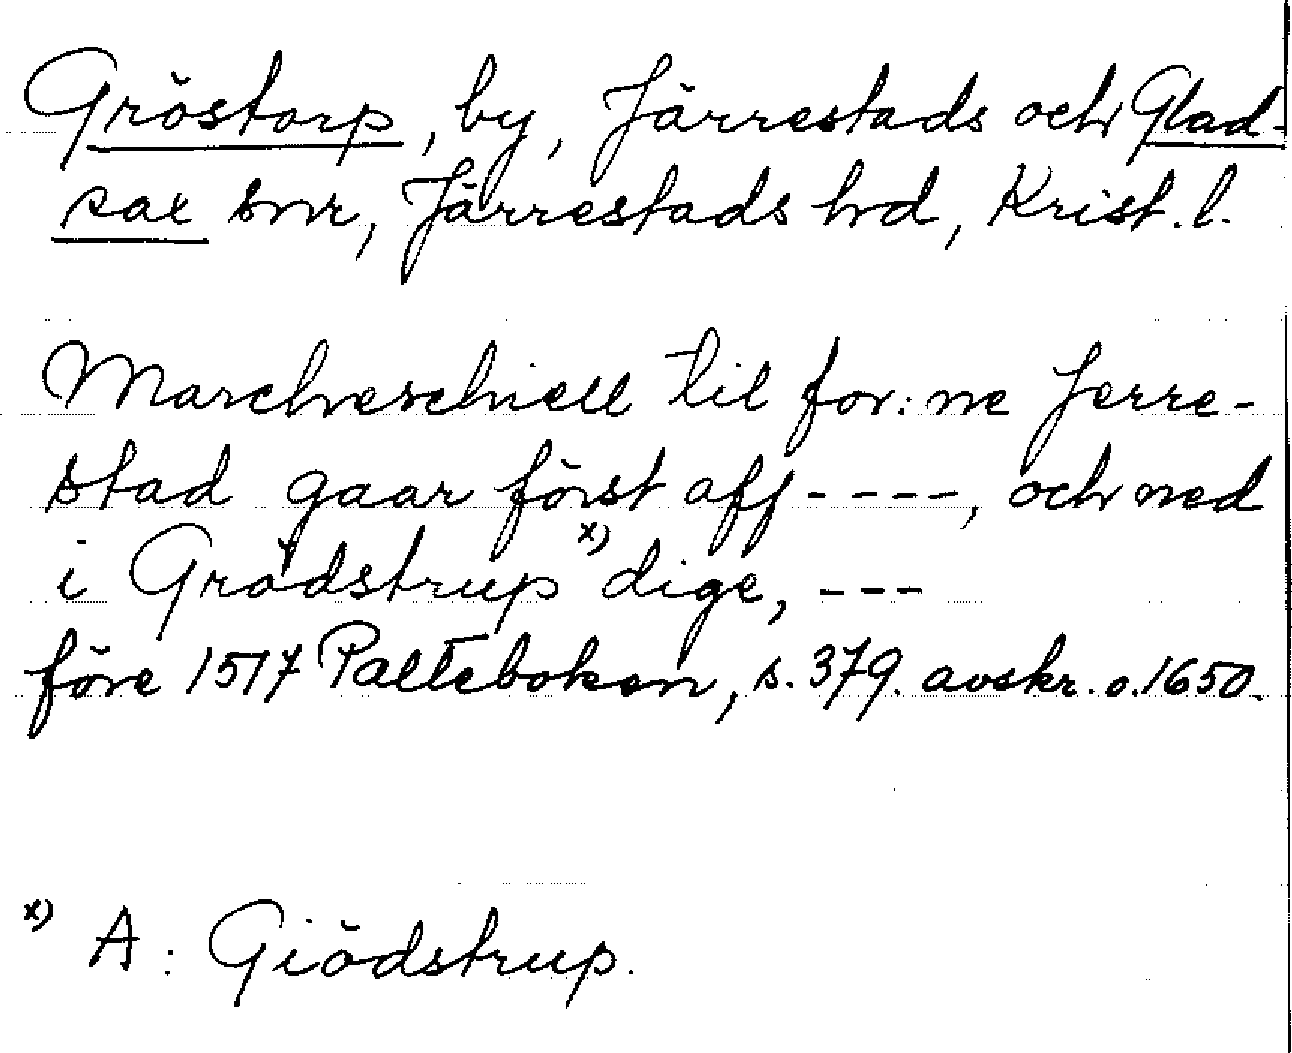 Gröstorp, by, Järrestads och Glad-
sax snr, Järrestads hd, Krist. l.
Marcheschiell til for: ne Jerre-
stad gaar först aff ----, och ned
i Grödstrup x) dige, ---
före 1517 Palteboken, s. 379. avskr. o. 1650.
x) A: Giödstrup.